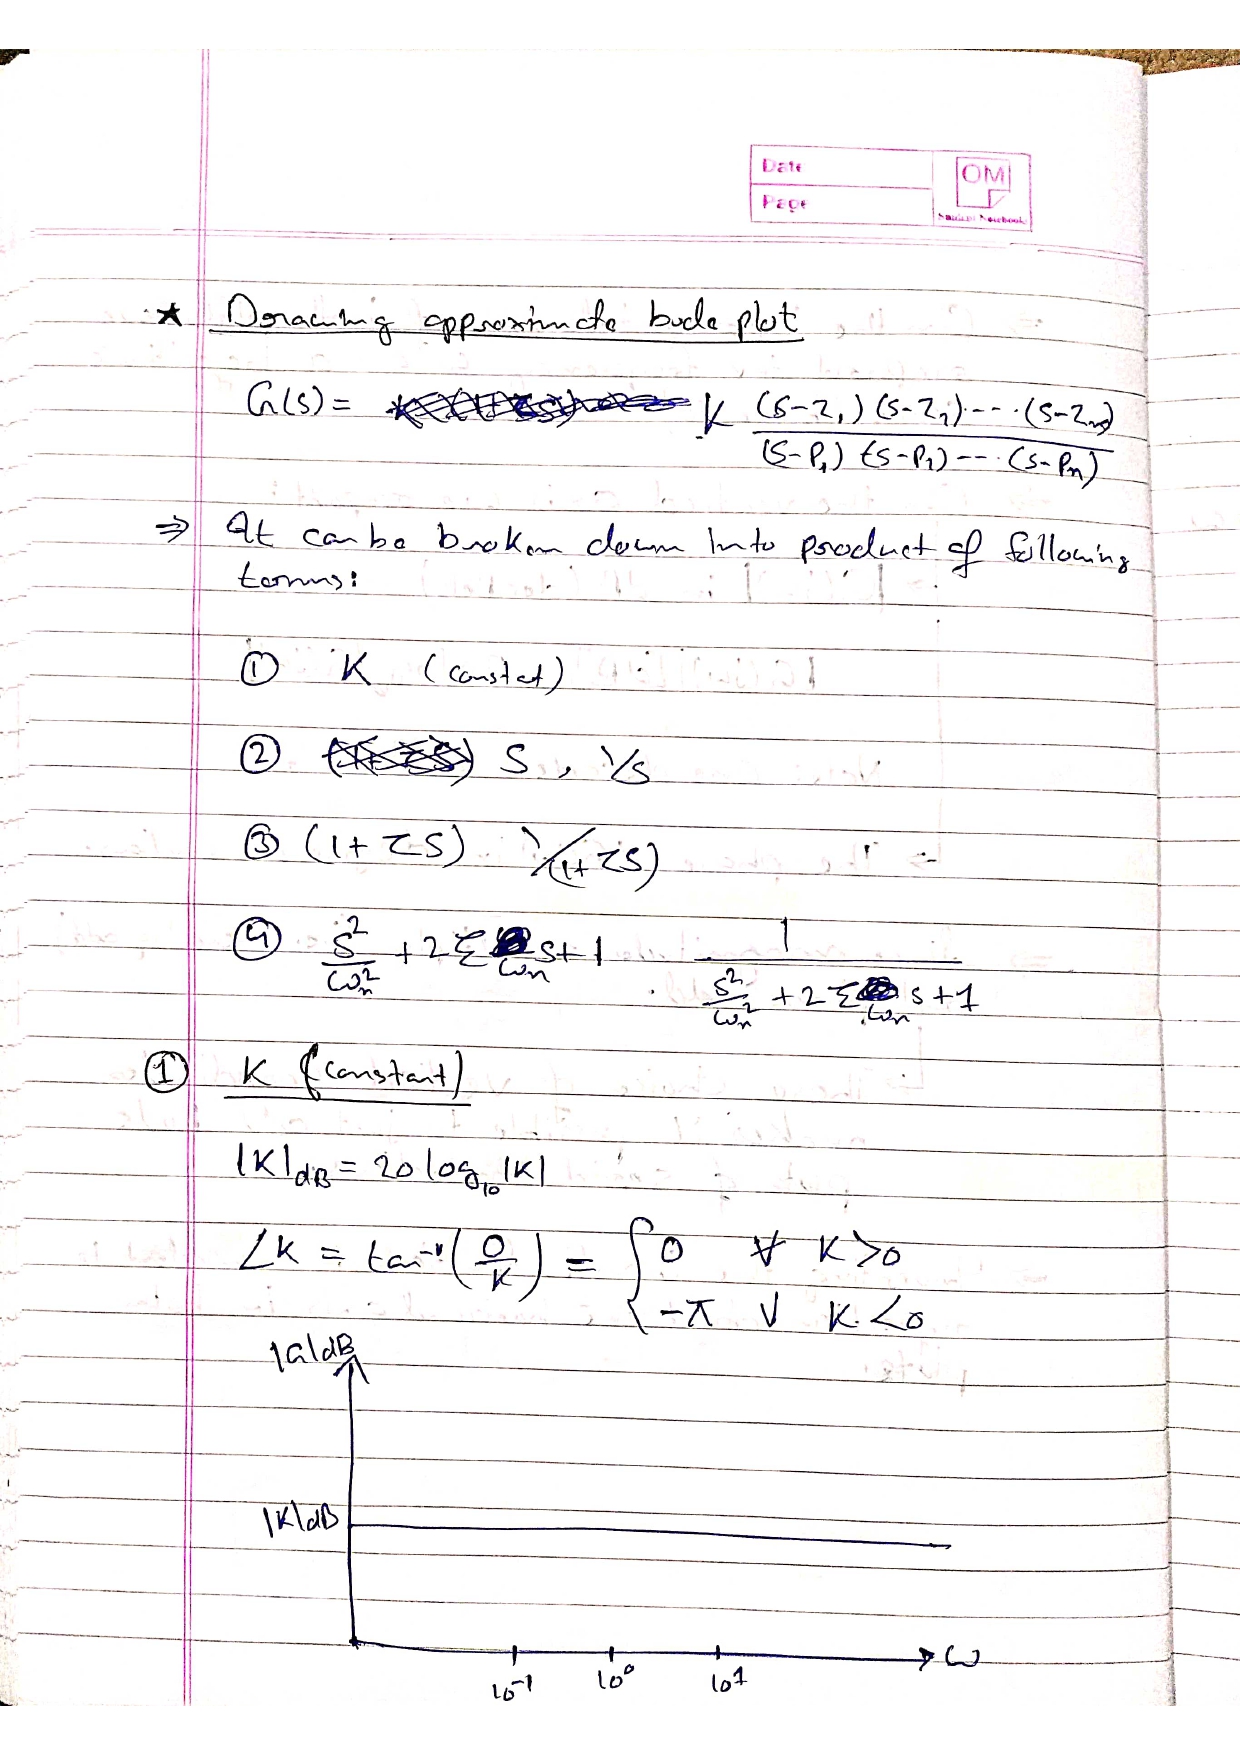 Date
Page
OM
Student Notebook
★ Drawing approximate bode plot
G(s) = K (s-z₁)(s-z₂)....(s-zₘ) / (s-p₁)(s-p₁)---.(s-pₙ)
⇒ It can be broken down into product of following
terms:
① K (constat)
② s, 1/s
③ (1+τs) 1/(1+τs)
④ s²/ωₙ² + 2ξ/ωₙ s+1 1/(s²/ωₙ² + 2ξ/ωₙ s+1)
① K (constant)
|K|dB = 20 log₁₀ |K|
∠K = tan⁻¹(0/K) = { 0 ∀ K>0
-π ∀ K<0
|G|dB
|K|dB
ω
10⁻¹ 10⁰ 10¹